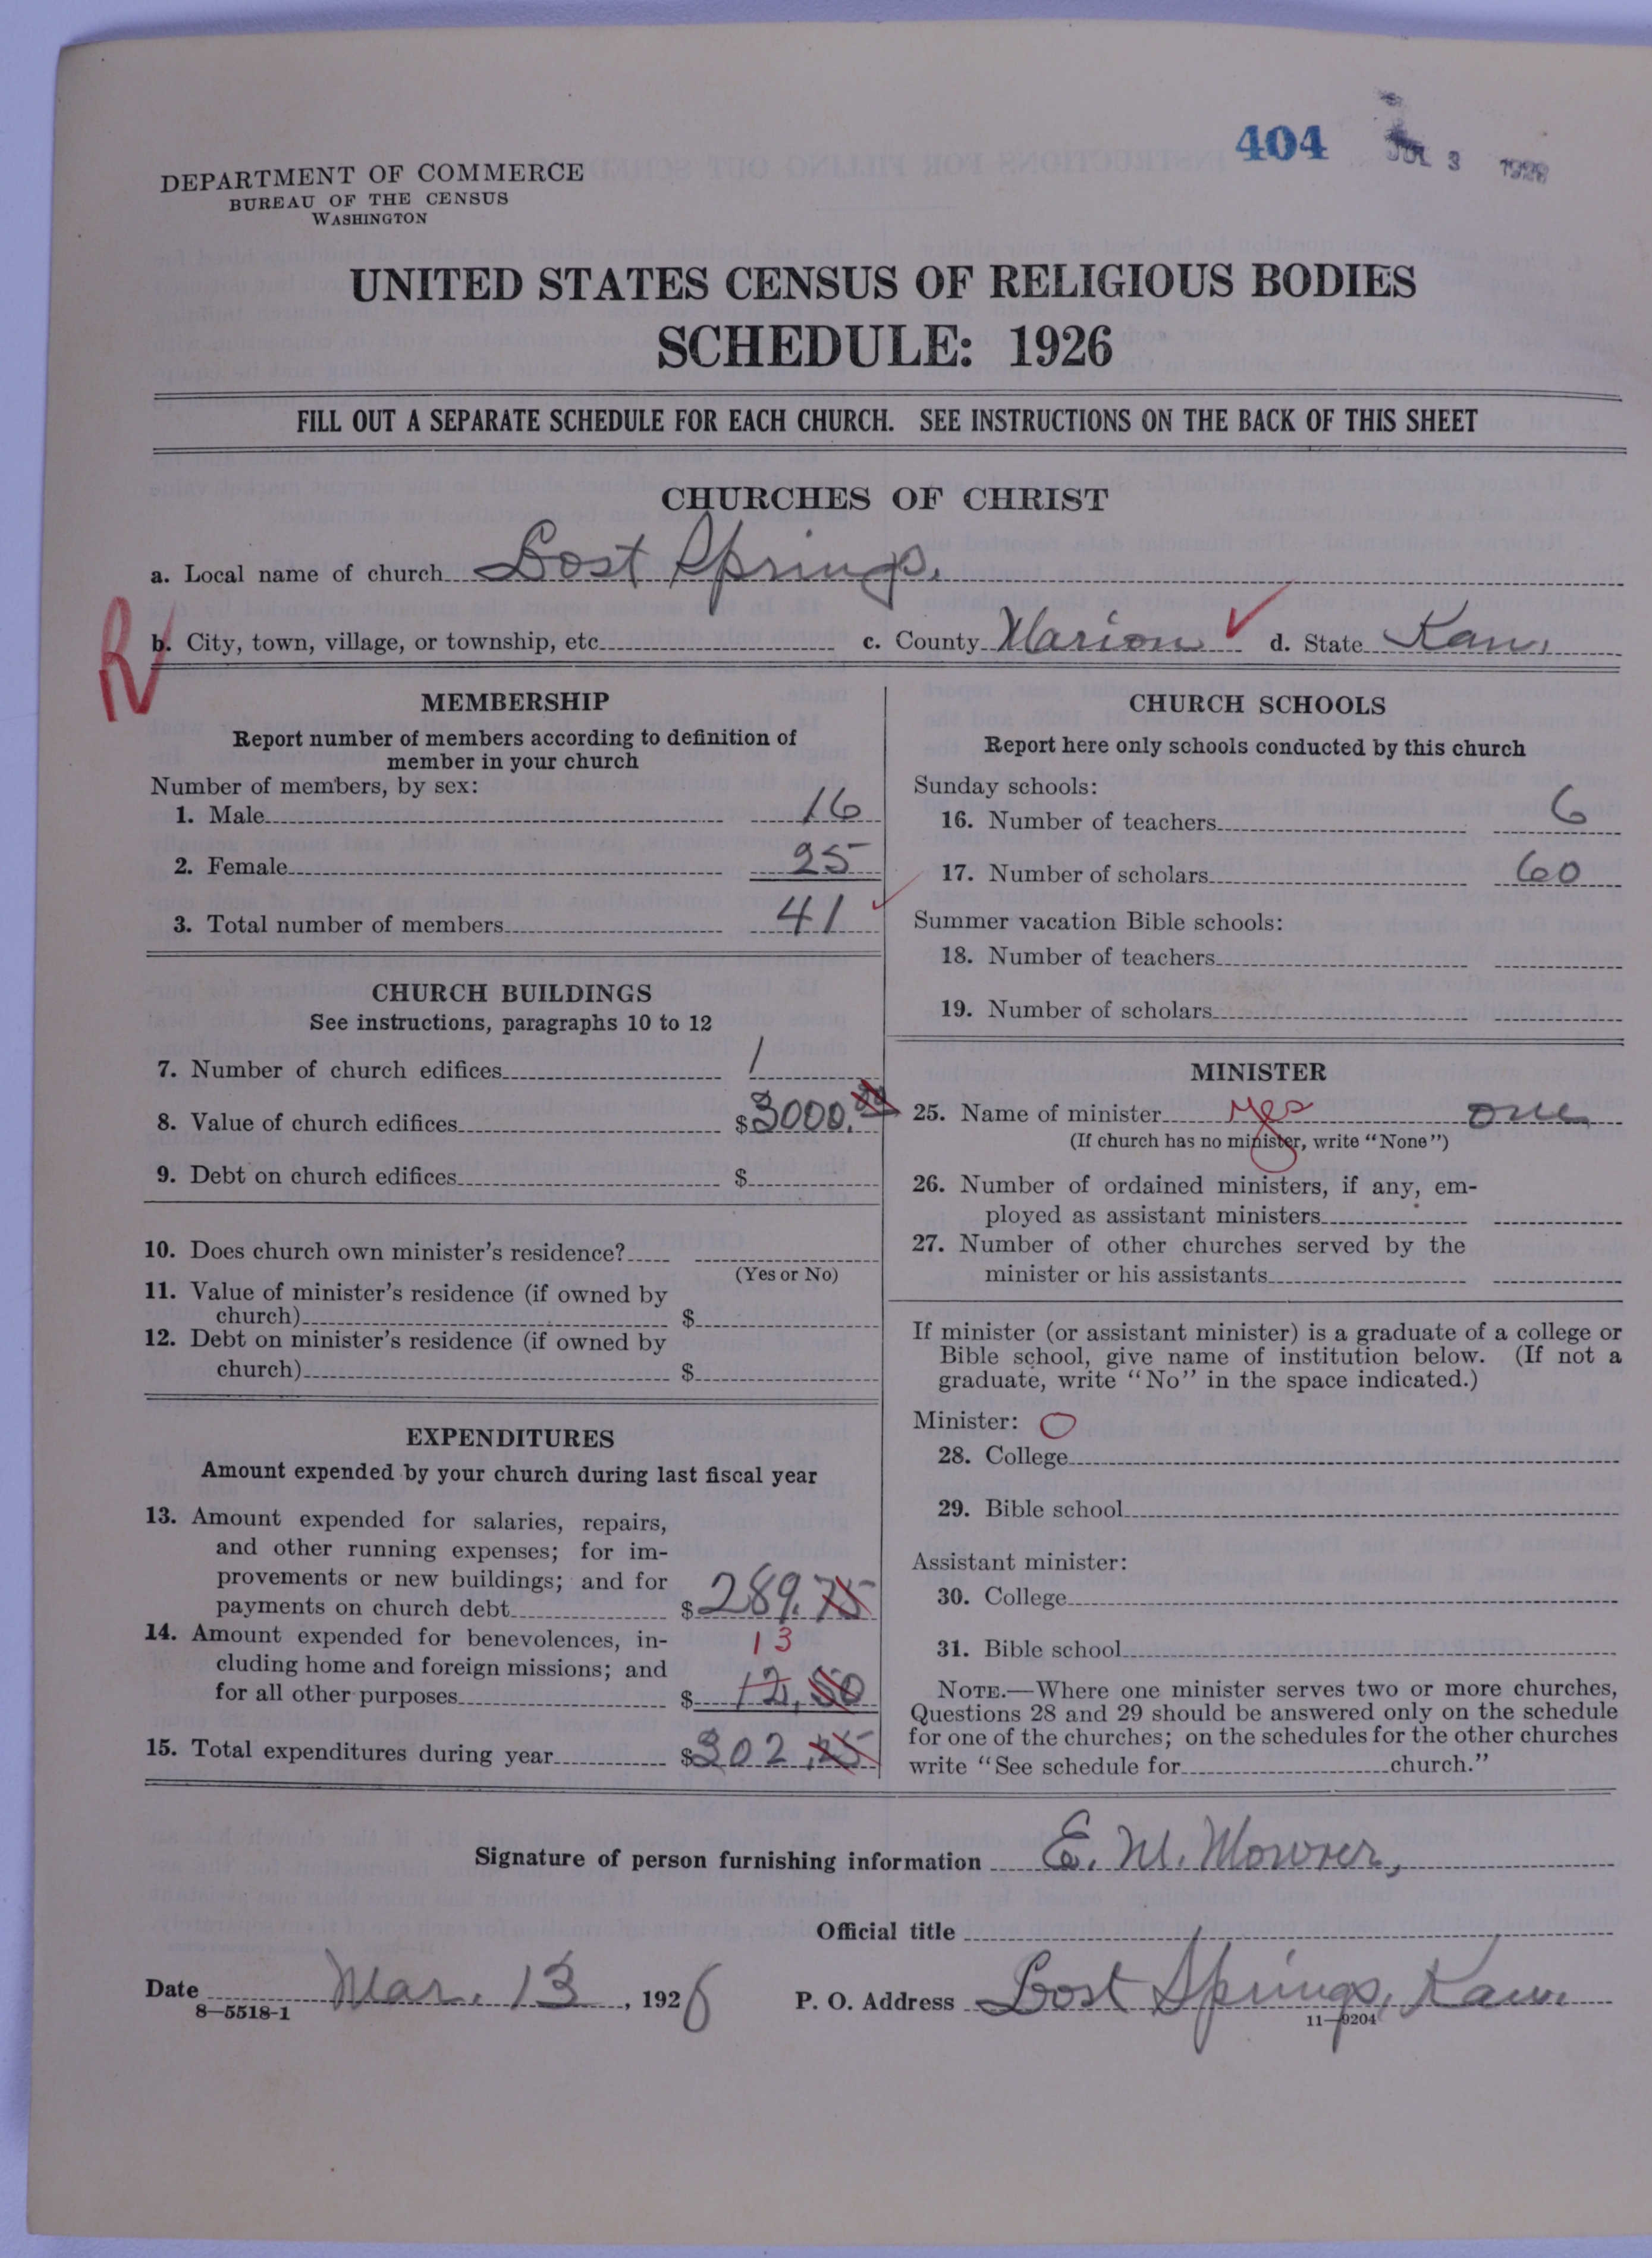 404 JUL 3 1926
DEPARTMENT OF COMMERCE
BUREAU OF THE CENSUS
WASHINGTON
UNITED STATES CENSUS OF RELIGIOUS BODIES
SCHEDULE: 1926
FILL OUT A SEPARATE SCHEDULE FOR EACH CHURCH. SEE INSTRUCTIONS ON THE BACK OF THIS SHEET
CHURCHES OF CHRIST
a. Local name of church Lost Springs.
R b. City, town, village, or township, etc. c. County Marion ✓ d. State Kan.
MEMBERSHIP
Report number of members according to definition of
member in your church
Number of members, by sex:
1. Male 16
2. Female 25
3. Total number of members 41 ✓
CHURCH BUILDINGS
See instructions, paragraphs 10 to 12
7. Number of church edifices 1
8. Value of church edifices $3000.00
9. Debt on church edifices $
10. Does church own minister's residence?
(Yes or No)
11. Value of minister's residence (if owned by
church) $
12. Debt on minister's residence (if owned by
church) $
EXPENDITURES
Amount expended by your church during last fiscal year
13. Amount expended for salaries, repairs,
and other running expenses; for im-
provements or new buildings; and for
payments on church debt $289.75
14. Amount expended for benevolences, in- 13
cluding home and foreign missions; and
for all other purposes $12.50
15. Total expenditures during year $302.25
CHURCH SCHOOLS
Report here only schools conducted by this church
Sunday schools:
16. Number of teachers 6
17. Number of scholars 60
Summer vacation Bible schools:
18. Number of teachers
19. Number of scholars
MINISTER
25. Name of minister yes one
(If church has no minister, write "None")
26. Number of ordained ministers, if any, em-
ployed as assistant ministers
27. Number of other churches served by the
minister or his assistants
If minister (or assistant minister) is a graduate of a college or
Bible school, give name of institution below. (If not a
graduate, write "No" in the space indicated.)
Minister: O
28. College
29. Bible school
Assistant minister:
30. College
31. Bible school
NOTE.—Where one minister serves two or more churches,
Questions 28 and 29 should be answered only on the schedule
for one of the churches; on the schedules for the other churches
write "See schedule for church."
Signature of person furnishing information E. M. Mowrer,
Official title
Date Mar. 13, 1926 P. O. Address Lost Springs, Kan.
8—5518-1 11—9204